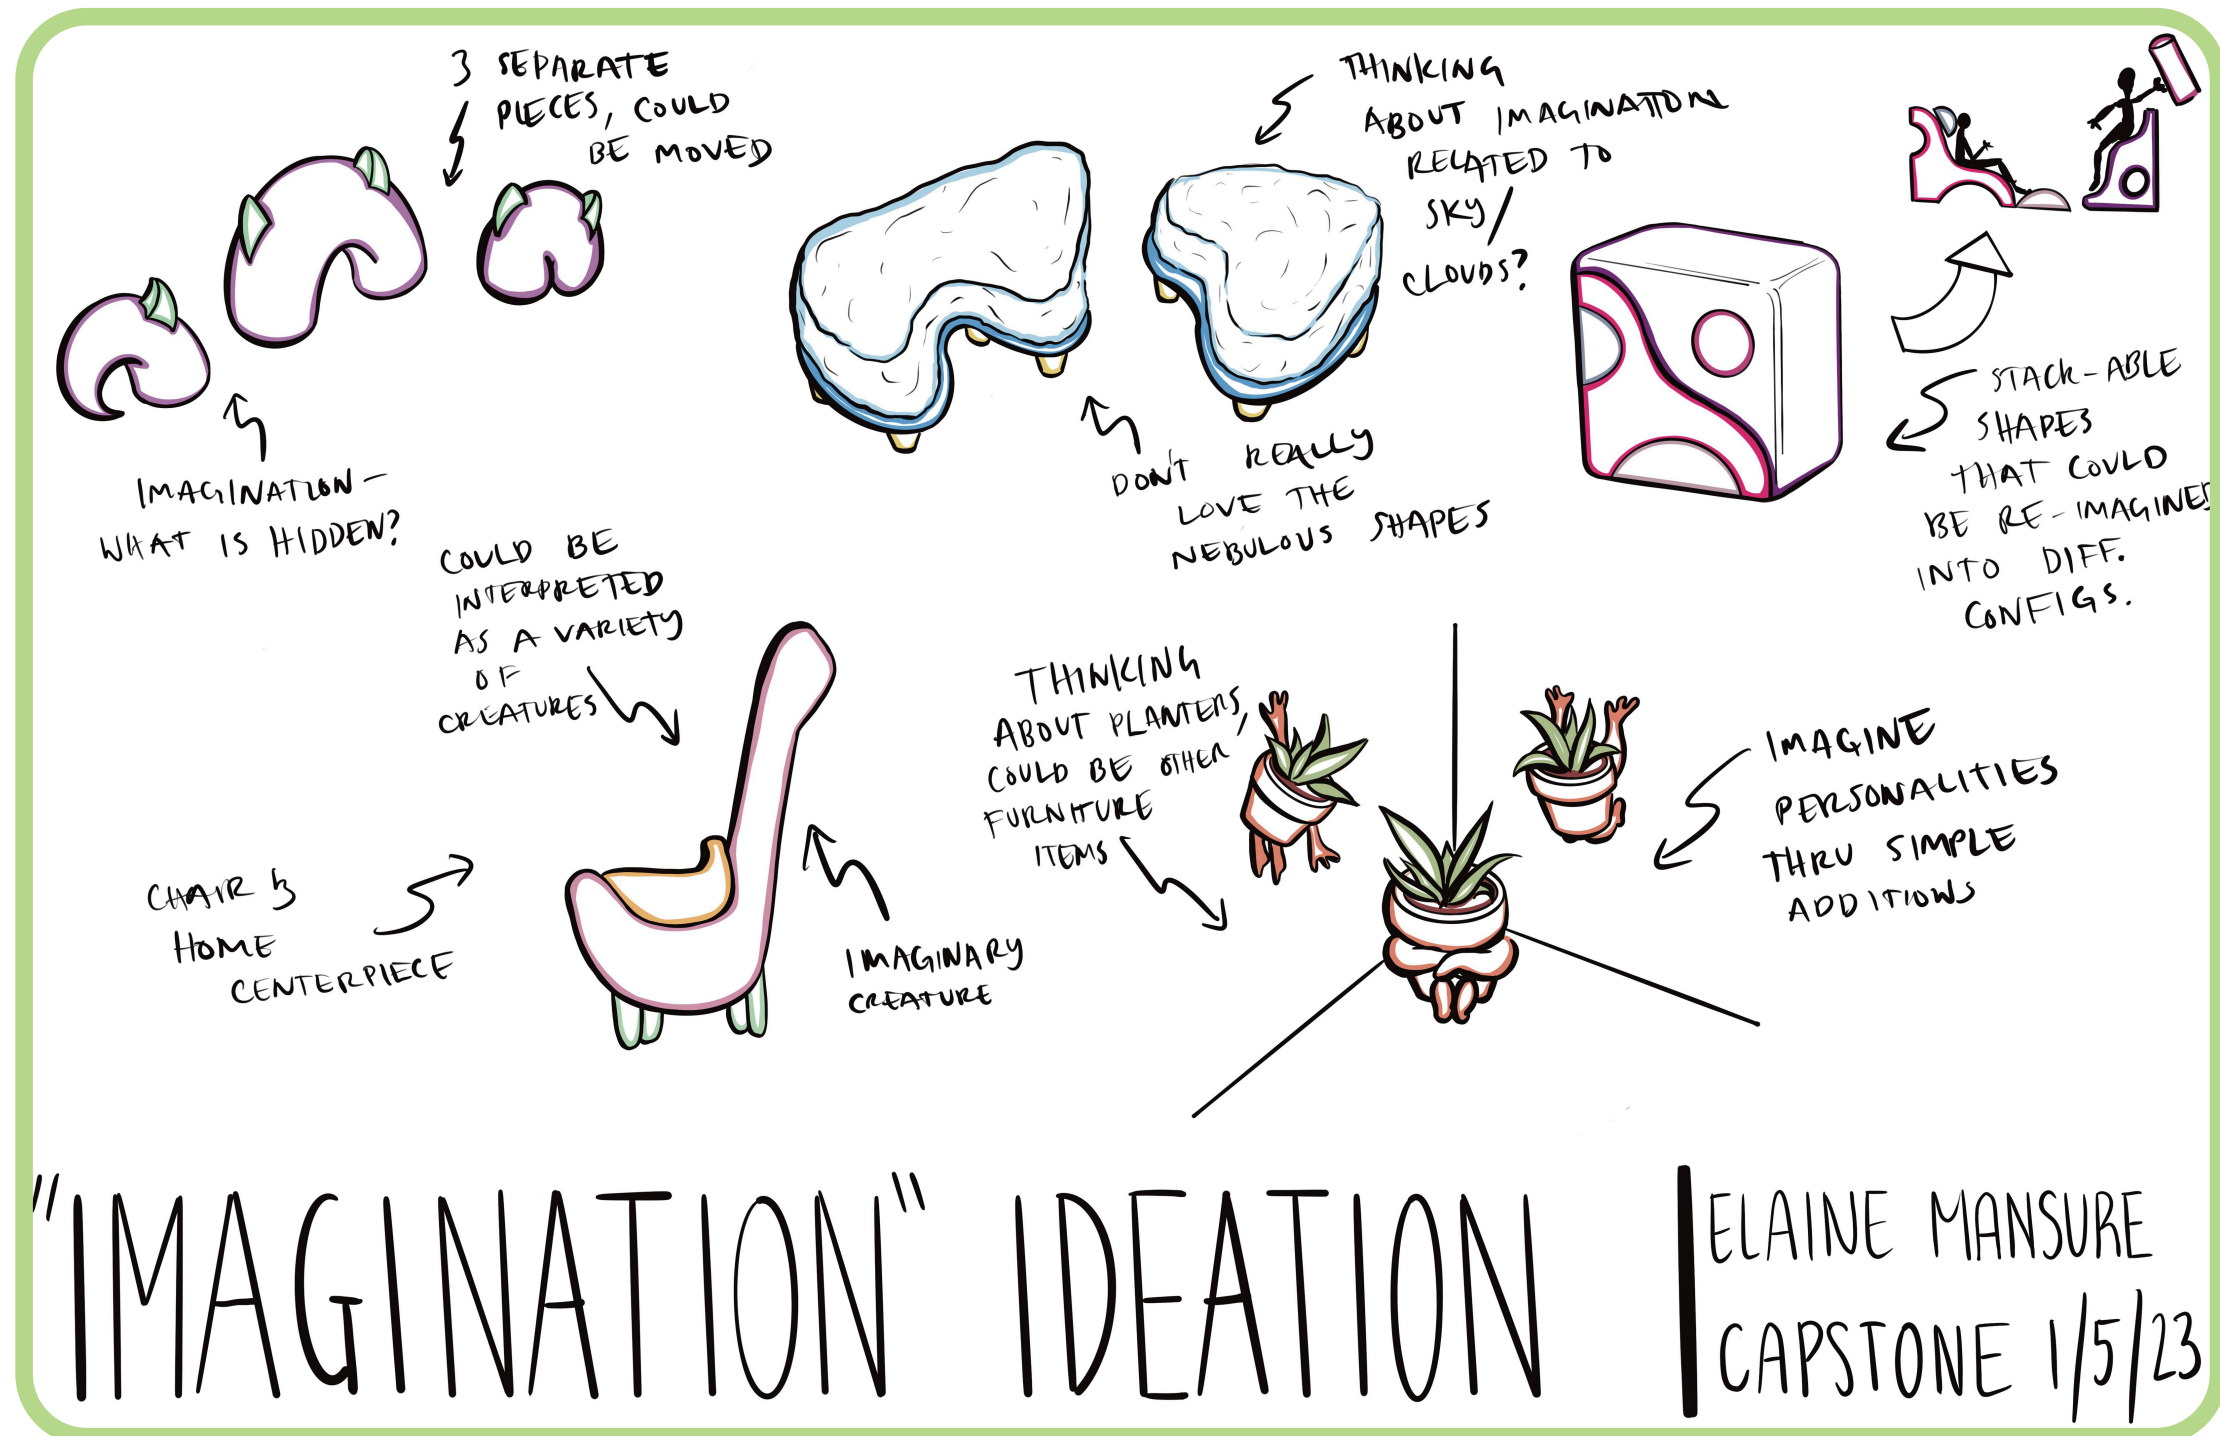 3 SEPARATE
PIECES, COULD
BE MOVED
IMAGINATION -
WHAT IS HIDDEN?
THINKING
ABOUT IMAGINATION
RELATED TO
SKY/
CLOUDS?
DON'T REALLY
LOVE THE
NEBULOUS SHAPES
STACK-ABLE
SHAPES
THAT COULD
BE RE-IMAGINED
INTO DIFF.
CONFIGS.
COULD BE
INTERPRETED
AS A VARIETY
OF
CREATURES
CHAIR &
HOME
CENTERPIECE
IMAGINARY
CREATURE
THINKING
ABOUT PLANTERS,
COULD BE OTHER
FURNITURE
ITEMS
IMAGINE
PERSONALITIES
THRU SIMPLE
ADDITIONS
"IMAGINATION" IDEATION
ELAINE MANSURE
CAPSTONE 1/5/23